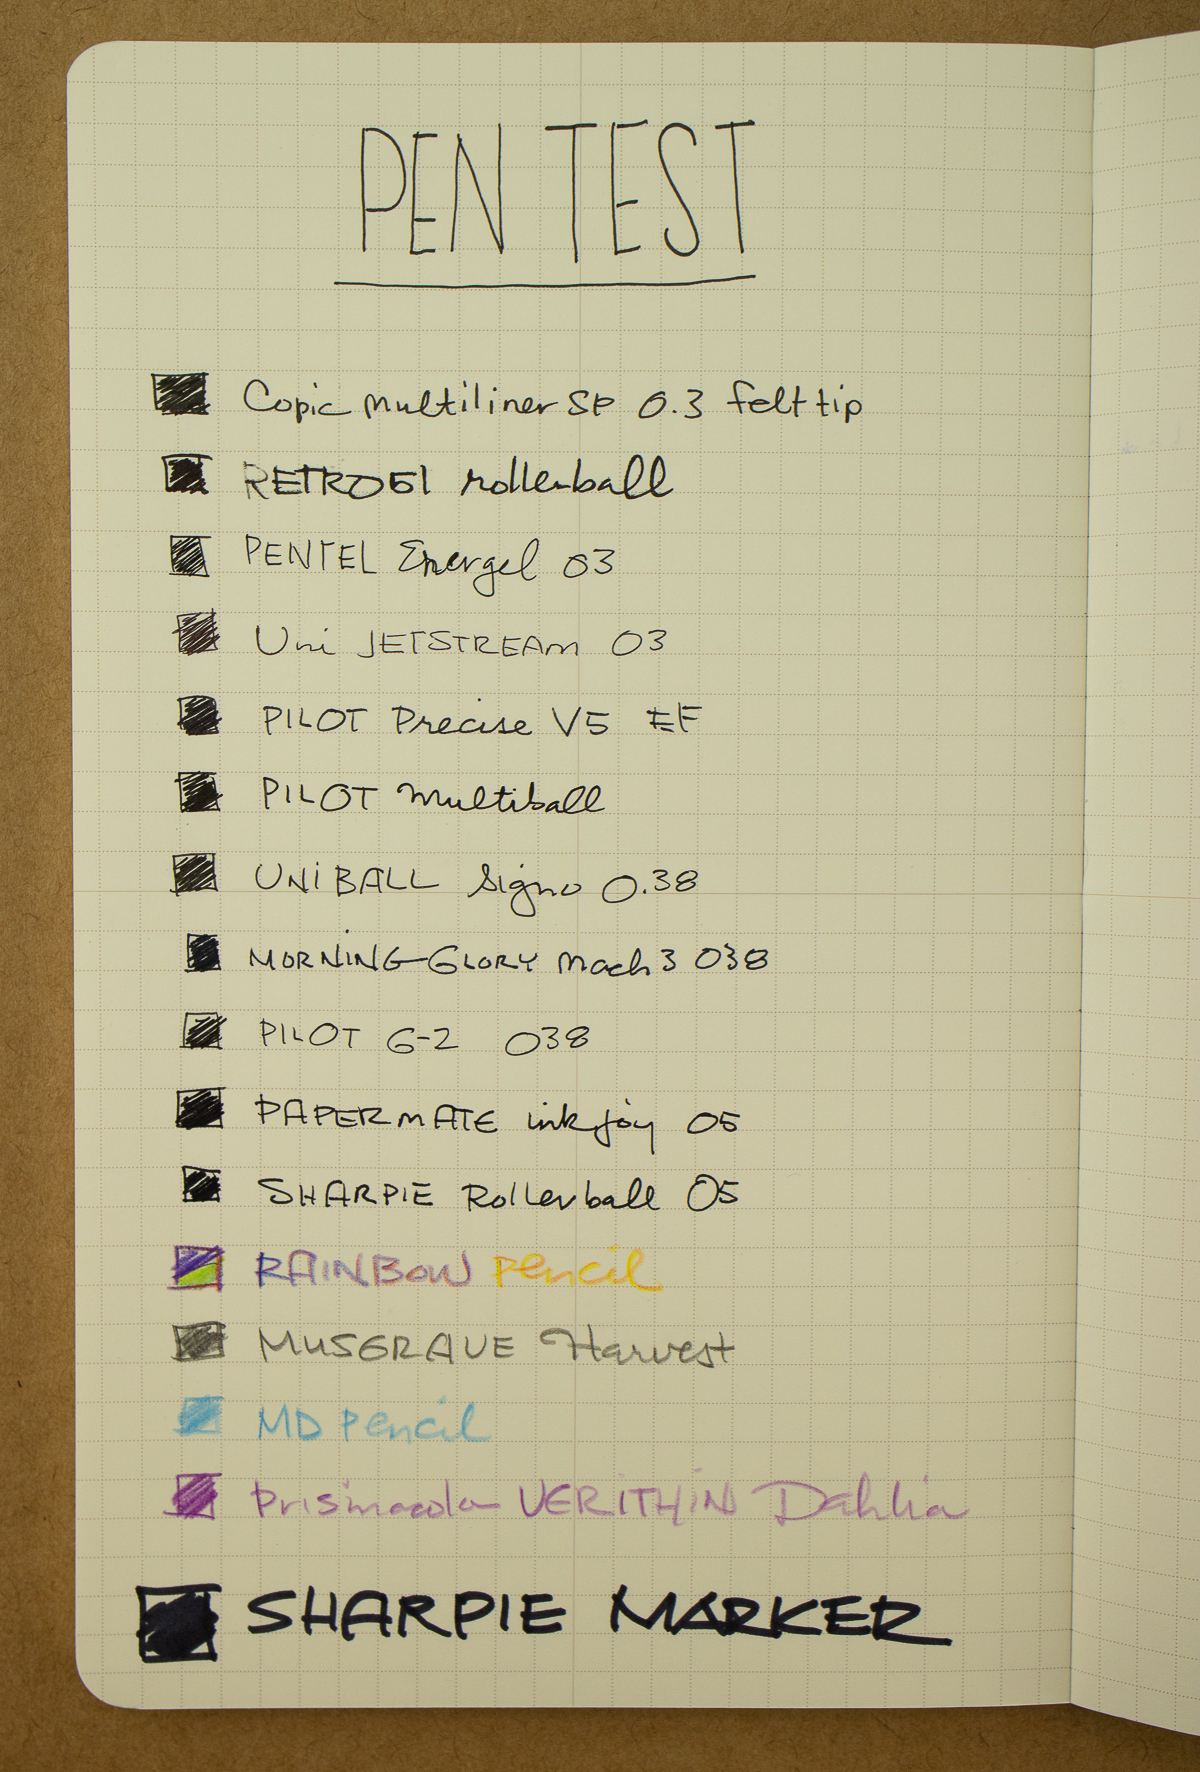 PEN TEST
Copic Multiliner SP 0.3 felt tip
RETRO51 rollerball
PENTEL Energel 03
Uni JETSTREAM 03
PILOT Precise V5 EF
PILOT Multiball
UNIBALL Signo 0.38
MORNING GLORY Mach 3 038
PILOT G-2 038
PAPERMATE inkjoy 05
SHARPIE Rollerball 05
RAINBOW pencil
MUSGRAVE Harvest
MD pencil
Prismacolor VERITHIN Dahlia
SHARPIE MARKER